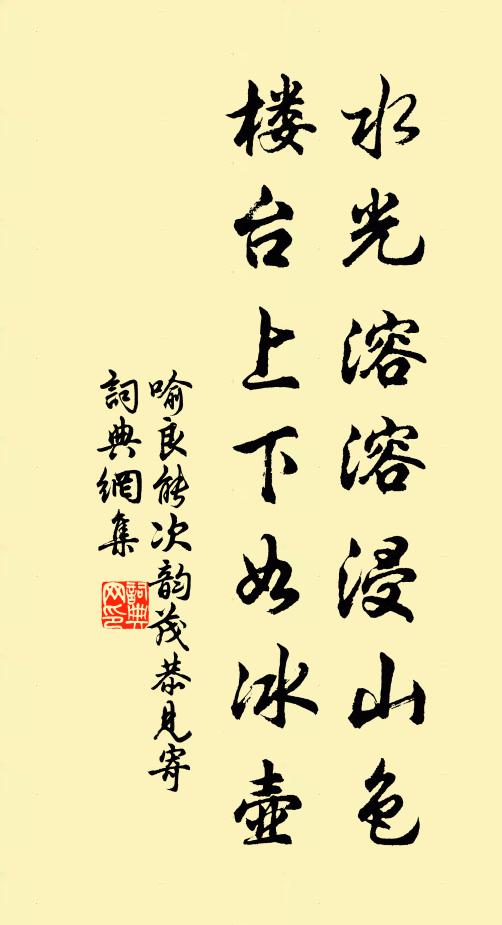 水光溶溶浸山色
楼台上下如冰壶
喻良能次韵茂恭见寄
詞典網集
詞典
网印